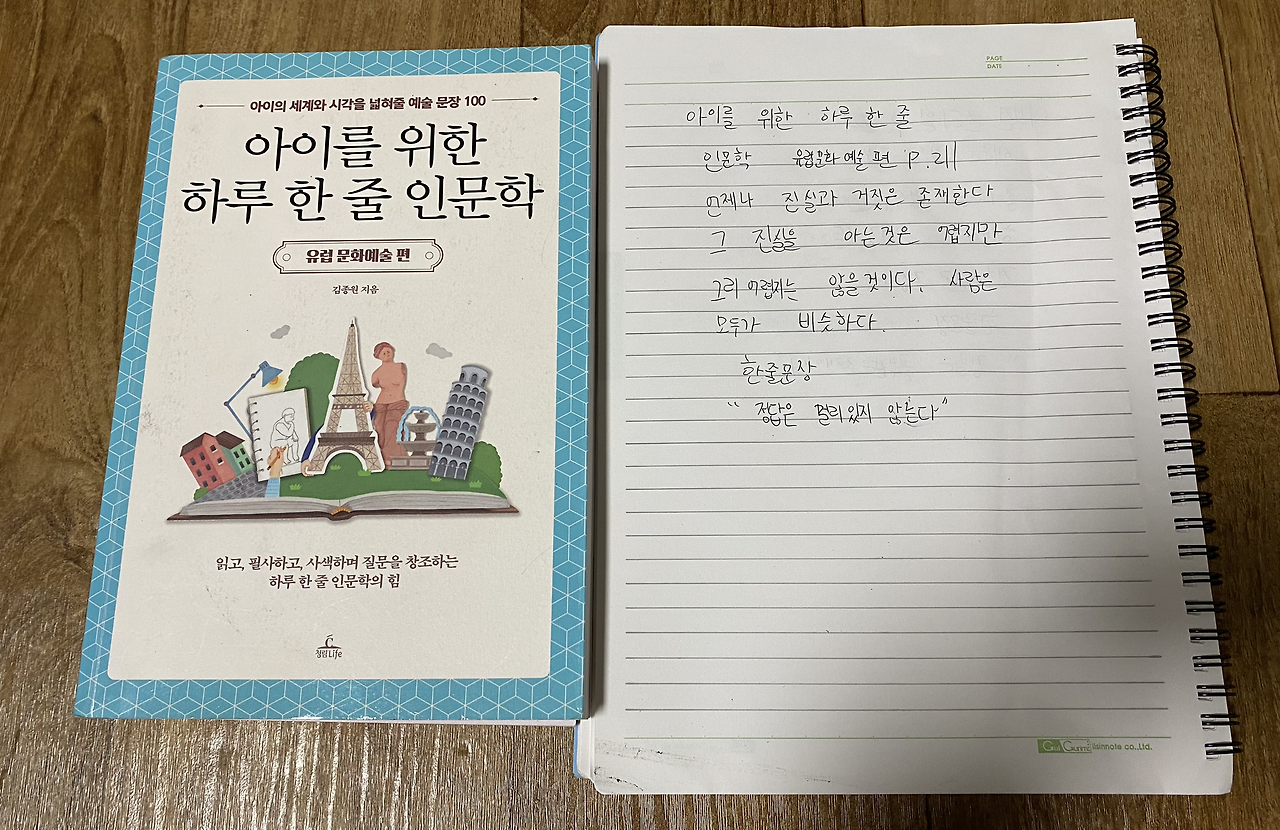 아이의 세계와 시각을 넓혀줄 예술 문장 100
아이를 위한
하루 한 줄 인문학
유럽 문화예술 편
김종원 지음
읽고, 필사하고, 사색하며 질문을 창조하는
하루 한 줄 인문학의 힘
청림Life
PAGE
DATE
아이를 위한 하루 한 줄
인문학 유럽문화 예술 편 P.211
언제나 진실과 거짓은 존재한다
그 진실을 아는것은 어렵지만
그리 어렵지는 않을것이다. 사람은
모두가 비슷하다.
한줄문장
"정답은 멀리있지 않는다"
ilsinnote co.,Ltd.